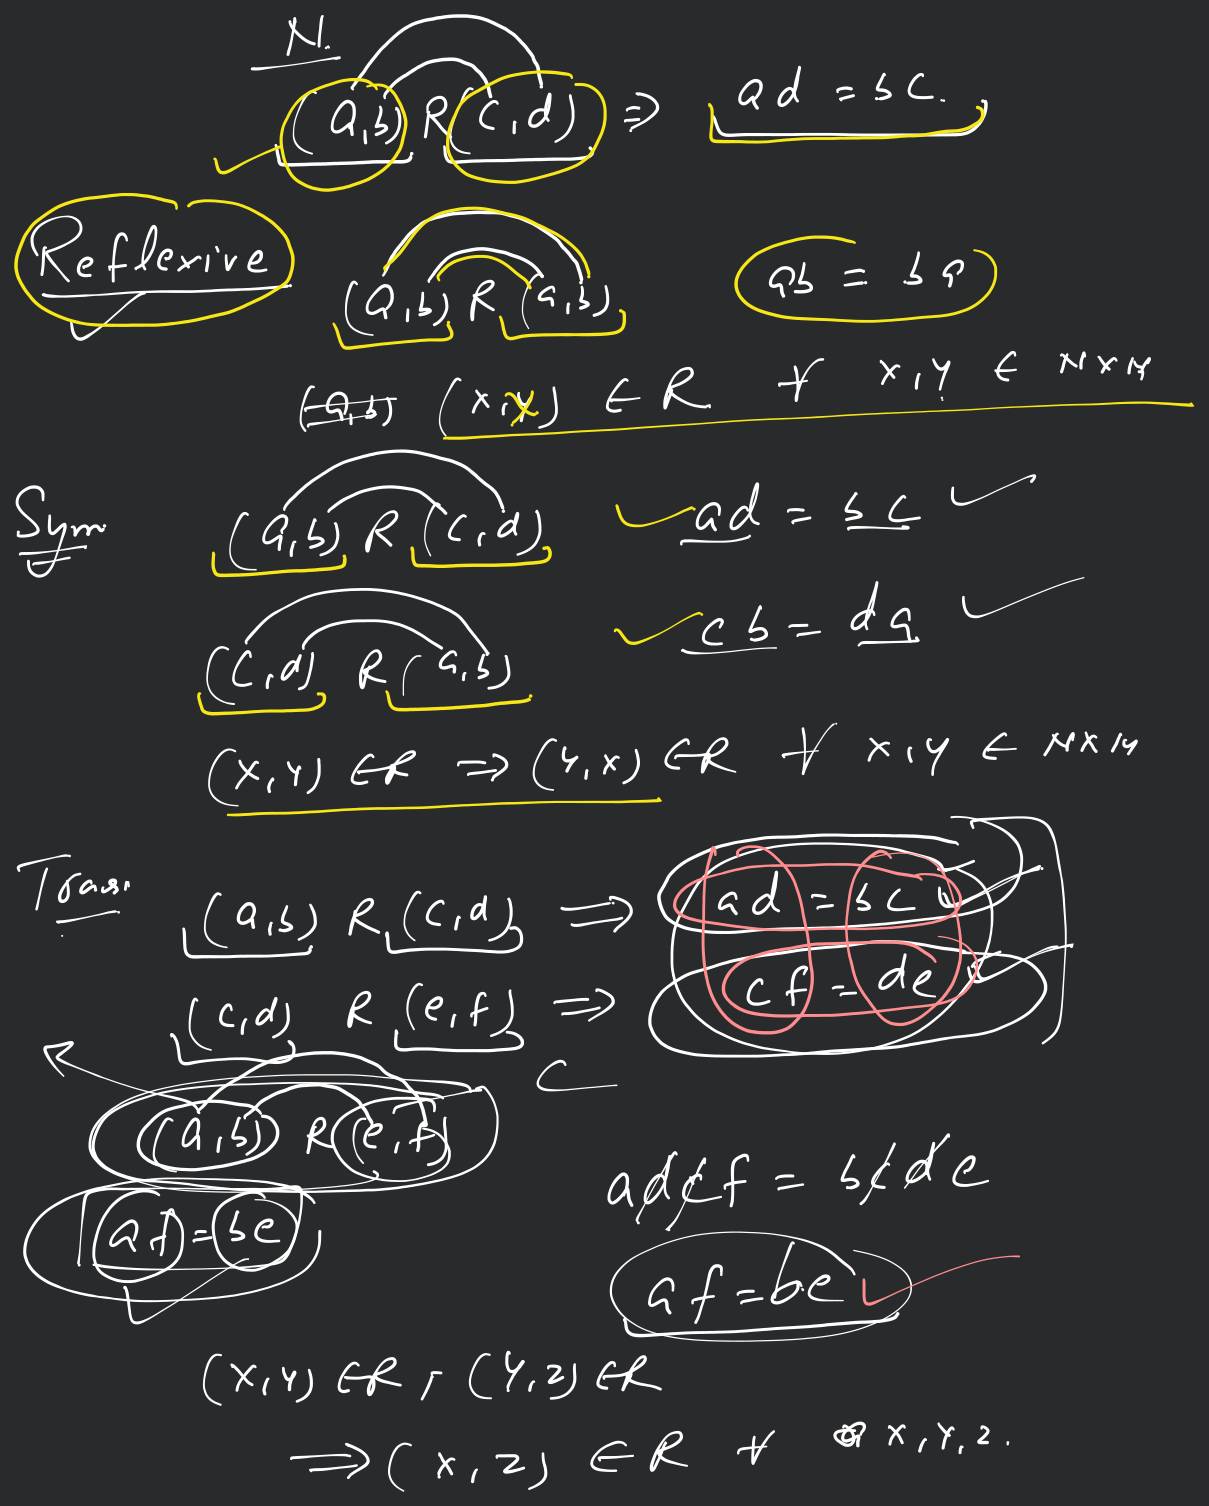 N.
(a,b) R (c,d) ⇒ ad = bc.
Reflexive
(a,b) R (a,b) ab = ba
(x,x) ∈ R ∀ x,y ∈ N×N
Sym
(a,b) R (c,d) ad = bc
(c,d) R (a,b) cb = da
(x,y) ∈R ⇒ (y,x) ∈R ∀ x,y ∈ N×N
Tran.
(a,b) R (c,d) ⇒ ad = bc
(c,d) R (e,f) ⇒ cf = de
(a,b) R (e,f)
adcf = bcde
af = be
af = be
(x,y) ∈R, (y,z) ∈R
⇒ (x,z) ∈ R ∀ x,y,z.